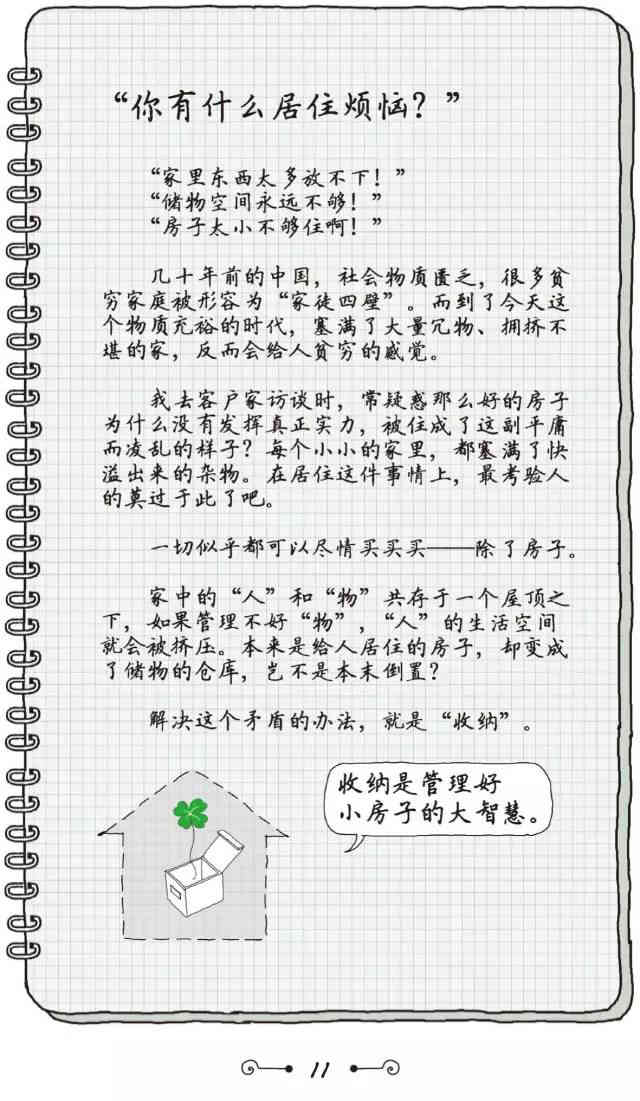 “你有什么居住烦恼？”
“家里东西太多放不下！”
“储物空间永远不够！”
“房子太小不够住啊！”
几十年前的中国，社会物质匮乏，很多贫
穷家庭被形容为“家徒四壁”。而到了今天这
个物质充裕的时代，塞满了大量冗物、拥挤不
堪的家，反而会给人贫穷的感觉。
我去客户家访谈时，常疑惑那么好的房子
为什么没有发挥真正实力，被住成了这副平庸
而凌乱的样子？每个小小的家里，都塞满了快
溢出来的杂物。在居住这件事情上，最考验人
的莫过于此了吧。
一切似乎都可以尽情买买买——除了房子。
家中的“人”和“物”共存于一个屋顶之
下，如果管理不好“物”，“人”的生活空间
就会被挤压。本来是给人居住的房子，却变成
了储物的仓库，岂不是本末倒置？
解决这个矛盾的办法，就是“收纳”。
收纳是管理好
小房子的大智慧。
11